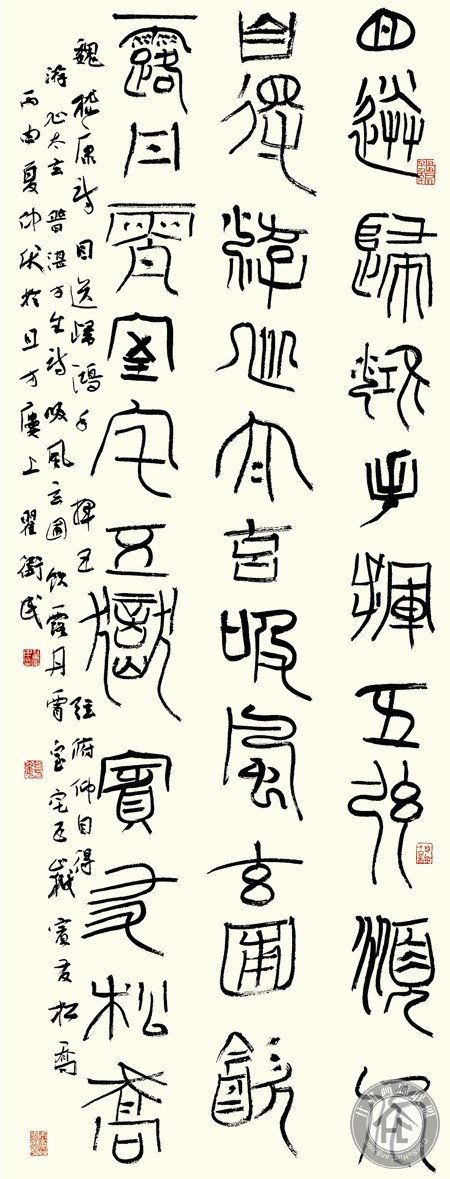 目送歸鴻手揮五弦頫卬
自得游心太玄吸風玄圃飲
露丹霄室宅五嶽賓友松喬
魏嵇康詩目送歸鴻手揮五弦俯仰自得
游心太玄晉湛方生詩吸風玄圃飲露丹霄室宅五嶽賓友松喬
丙申夏仲伏於且方廔上翟衛民